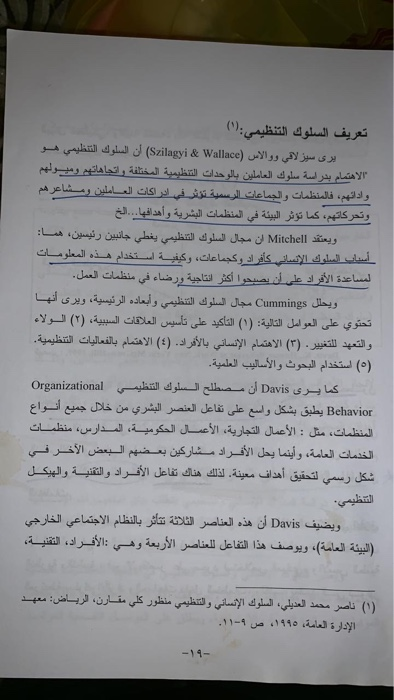 تعريف السلوك التنظيمي:(١)
يرى سيزلاقي ووالاس (Szilagyi & Wallace) أن السلوك التنظيمي هو
"الاهتمام بدراسة سلوك العاملين بالوحدات التنظيمية المختلفة واتجاهاتهم وميولهم
وادائهم، فالمنظمات والجماعات الرسمية تؤثر في ادراكات العاملين ومشاعرهم
وتحركاتهم، كما تؤثر البيئة في المنظمات البشرية وأهدافها...الخ
ويعتقد Mitchell ان مجال السلوك التنظيمي يغطي جانبين رئيسين، هما:
أسباب السلوك الإنساني كأفراد وكجماعات، وكيفية استخدام هذه المعلومات
لمساعدة الأفراد على أن يصبحوا أكثر انتاجية ورضاء في منظمات العمل.
ويحلل Cummings مجال السلوك التنظيمي وأبعاده الرئيسية، ويرى أنها
تحتوي على العوامل التالية: (١) التأكيد على تأسيس العلاقات السببية، (٢) الولاء
والتعهد للتغيير. (٣) الاهتمام الإنساني بالأفراد. (٤) الاهتمام بالفعاليات التنظيمية.
(٥) استخدام البحوث والأساليب العلمية.
كما يرى Davis أن مصطلح السلوك التنظيمي Organizational
Behavior يطبق بشكل واسع على تفاعل العنصر البشري من خلال جميع أنواع
المنظمات، مثل : الأعمال التجارية، الأعمال الحكومية، المدارس، منظمات
الخدمات العامة، وأينما يحل الأفراد مشاركين بعضهم البعض الآخر في
شكل رسمي لتحقيق أهداف معينة. لذلك هناك تفاعل الأفراد والتقنية والهيكل
التنظيمي.
ويضيف Davis أن هذه العناصر الثلاثة تتأثر بالنظام الاجتماعي الخارجي
(البيئة العامة)، ويوصف هذا التفاعل للعناصر الأربعة وهي :الأفراد، التقنية،
(١) ناصر محمد العديلي، السلوك الإنساني والتنظيمي منظور كلي مقارن، الرياض: معهد
الإدارة العامة، ١٩٩٥، ص ٩-١١.
-١٩-